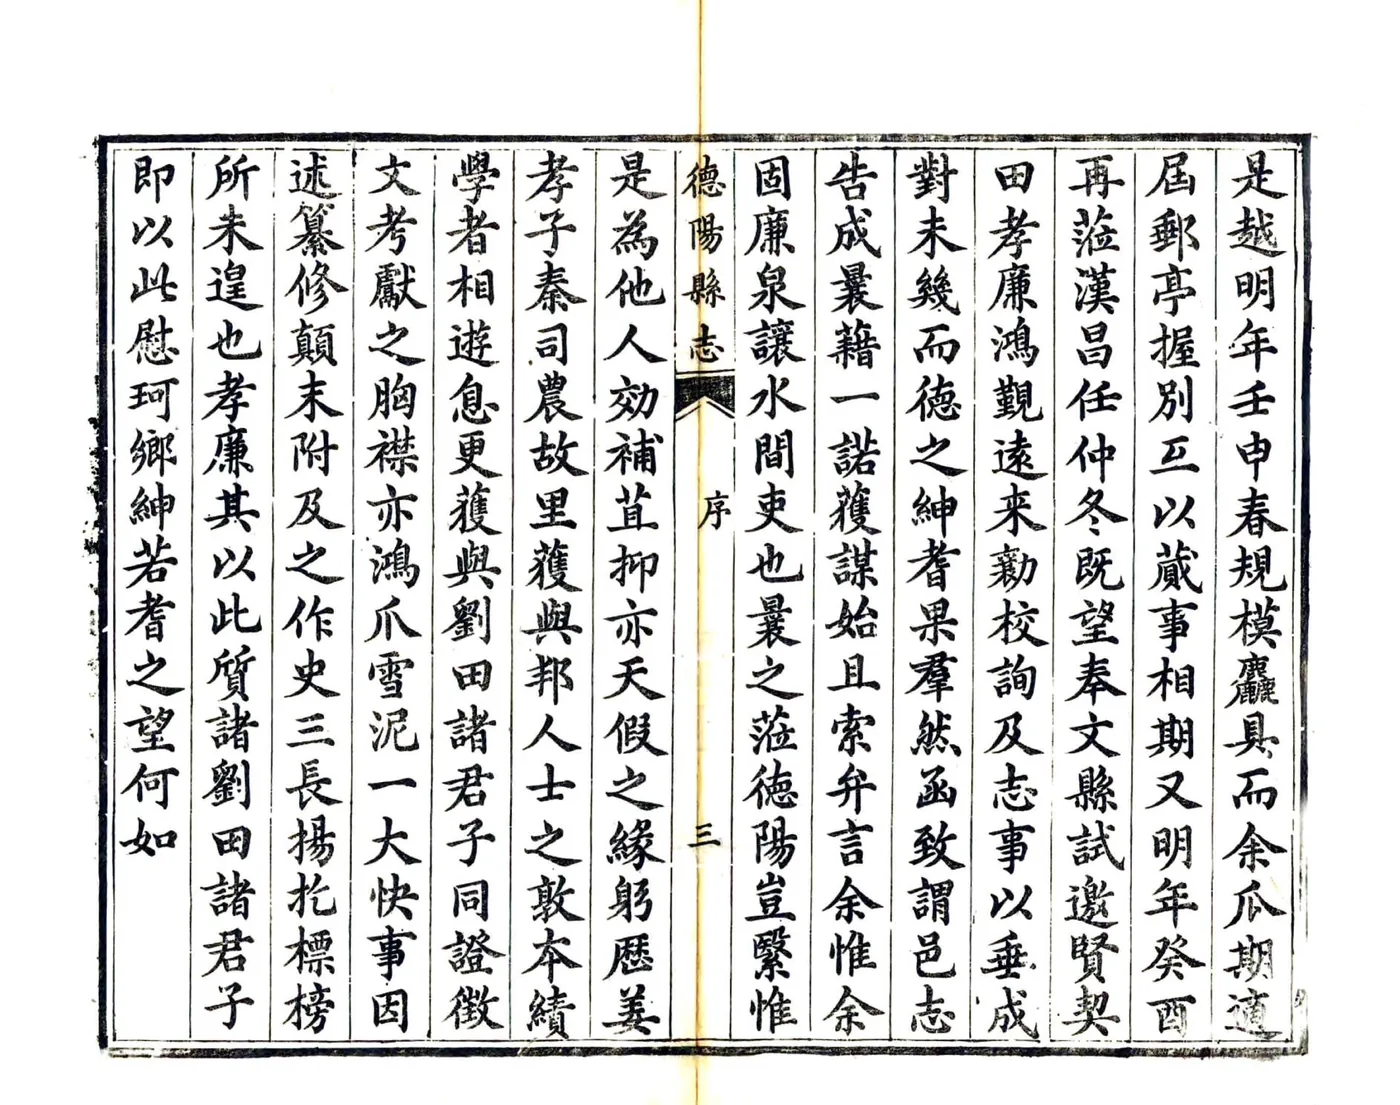 是越明年壬申春規模麤具而余瓜期適
屆郵亭握別叾以蕆事相期又明年癸酉
再蒞漢昌任仲冬既望奉文縣試邀賢契
田孝廉鴻覲遠来勷校詢及志事以垂成
對未幾而德之紳耆果羣然函致謂邑志
告成曩藉一諾蒦謀始且索弁言余惟余
固廉泉讓水間吏也曩之蒞德陽豈緊惟
德陽縣志
序
三
是為他人効補苴抑亦天假之緣躬歷姜
孝子秦司農故里蒦與邦人士之敦本績
學者相遊息更蒦與劉田諸君子同證徵
文考獻之胸襟亦鴻爪雪泥一大快事因
述纂修顛末附及之作史三長揚扢標榜
所未遑也孝廉其以此質諸劉田諸君子
即以此慰珂鄉紳若耆之望何如